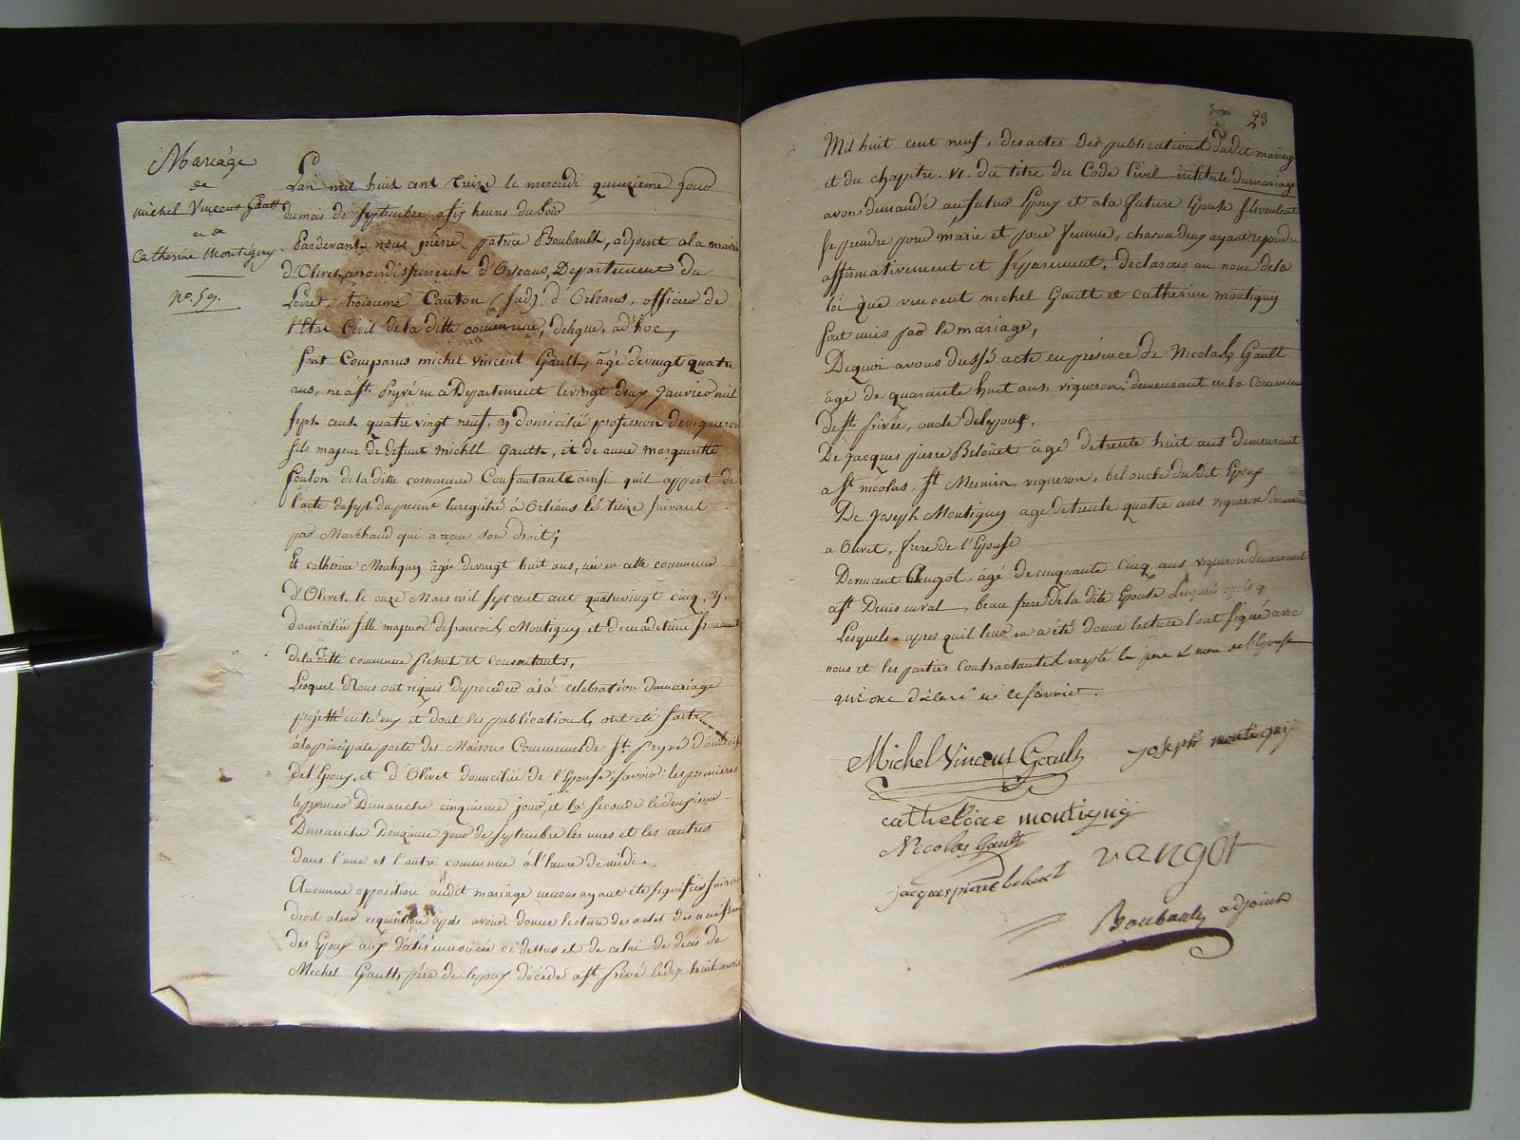 Mariage
de
Michel Vincent Gault
et de
Catherine Montigny
no. 59.
L'an mil huit cent treize le mercredi quinzieme jour
du mois de septembre a six heures du soir
Pardevant nous pierre patrice Boubault, adjoint a la mairie
d'Olivet, arrondissement d'Orleans, Departement du
Loiret, troisieme Canton (sud) d'Orleans, officier de
l'Etat Civil de la ditte commune, delegué, ad'hoc,
sont Comparus michel vincent Gault, âgé de vingt quatre
ans, né a st. privé en ce Departement le vingt deux Janvier mil
sept cent quatre vingt neuf, y domicilié profession de vigneron
fils majeur de defunt michel Gault, et de anne marguerite
de la ditte commune Consentante ainsi quil appert de
l'acte du sept du present enregistré à Orléans le treize suivant
par Marchand qui a reçu son droit;
Et catherine Montigny âgée de vingt huit ans, née en cette commune
d'Olivet le onze Mars mil sept cent quatrevingt cinq, y
domiciliée fille majeure de francois Montigny et de
de la ditte commune presents et consentants,
Lesquels Nous ont requis de proceder à la celebration du mariage
projetté entr'eux et dont les publications ont été faites
à la principale porte des Maisons Communes de St. privé domicile
de l'Epoux, et d'Olivet domicile de l'Epouse, savoir: les premieres
le premier Dimanche cinquieme jour, et la seconde le deuxieme
Dimanche Douzieme jour de septembre les unes et les autres
dans l'une et l'autre commune à l'heure de midi.
Aucunne opposition audit mariage ne nous ayant été signifiée faisant
droit a leur requisition après avoir donné lecture des actes de naissance
des Epoux aux dates enoncées ci dessus et de celui de deces de
Michel Gault, père de l'epoux décédé a st. privé le dix huit
23
Mil huit cent neuf, des actes des publications dudit mariage
et du chapitre. VI. du titre du Code Civil intitulé du mariage
avons demandé au futur Epoux et a la future Epouse s'ils veulent
se prendre pour marie et pour femme, chacun deux ayant repondu
affirmativement et séparément, declarons au nom de la
loi que vincent michel Gault et catherine montigny
sont unis par le mariage,
De quoi avons dressé acte en présence de Nicolas Gault
âgé de quarante huit ans, vigneron, demeurant en la Commune
de st. privée, oncle de l'epoux,
De jacques pierre Belouet âgé de trente huit ans demeurant
a st. nicolas, st. Mesmin, vigneron, bel oncle du dit Epoux
De Joseph Montigny agé de trente quatre ans vigneron demeurant
a Olivet, frere de l'Epouse
âgé de cinquante cinq ans vigneron demeurant
a st. Denis en val, beau frere de la dite Epouse
Lesquels apres quil leur en a été donné lecture l'ont signé avec
nous et les parties Contractantes excepté le pere & mere de l'Epouse
qui ont déclaré ne le savoir.
Michel Vincent Gault
joseph montigny
catherine montigny
Nicolas Gault
vangot
jacques pierre belouet
Boubault adjoint